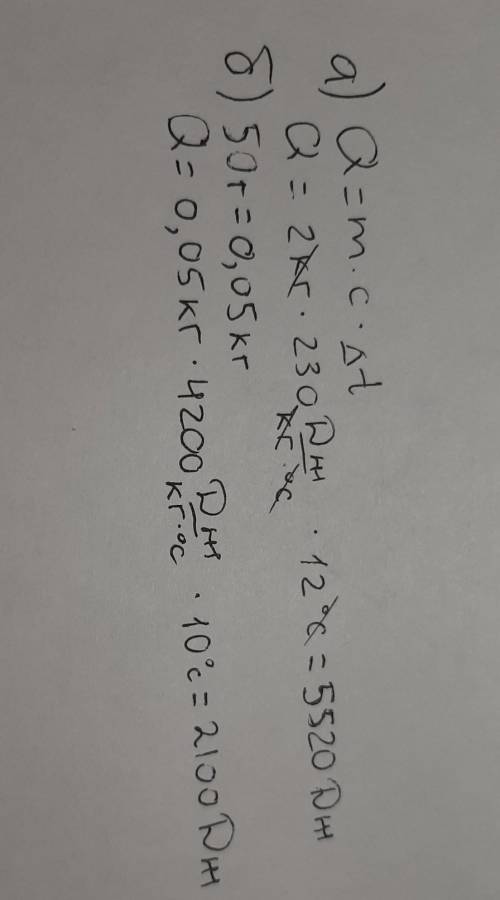 а) Q = m · c · Δt
Q = 2кг · 230 Дж/кг·°С · 12°С = 5520 Дж
б) 50г = 0,05кг
Q = 0,05кг · 4200 Дж/кг·°С · 10°С = 2100 Дж